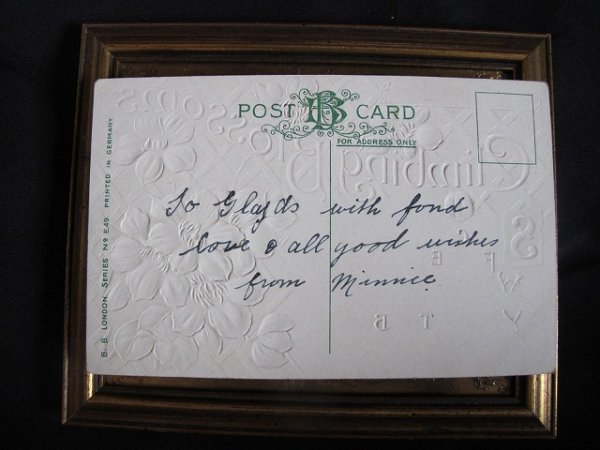 POST BB CARD
FOR ADDRESS ONLY
B. B. LONDON. SERIES Nº E.49. PRINTED IN GERMANY.
To Glayds with fond
love & all good wishes
from Minnie
Climbing Blossoms